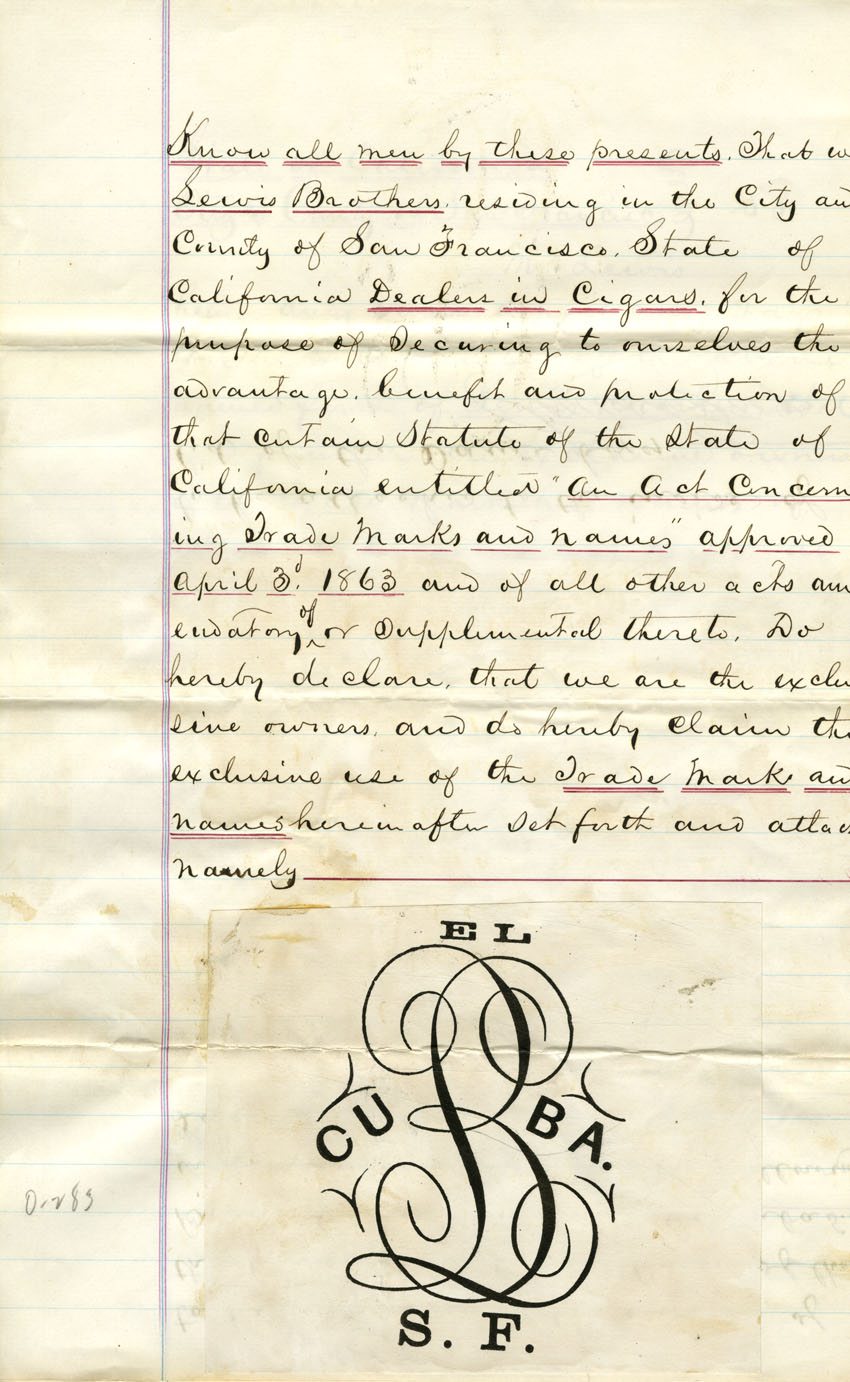 Know all men by these presents, That w
Lewis Brothers, residing in the City an
County of San Francisco, State of
California Dealers in Cigars, for the
purpose of Securing to ourselves the
advantage, benefit and protection of
that certain Statute of the State of
California entitled "An Act Concern
ing Trade Marks and names" approved
April 3d. 1863 and of all other acts am
endatory of or Supplemental thereto, Do
hereby declare, that we are the exclu
sive owners, and do hereby Claim the
exclusive use of the Trade Mark an
names hereinafter Set forth and attac
namely
EL
LB
CUBA.
S. F.
0-283